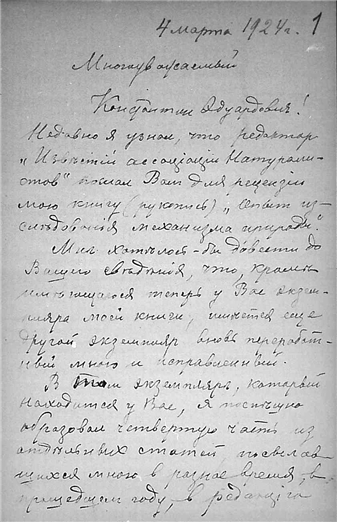 4 марта 1924 г. 1
Многоуважаемый
Константин Эдуардович!
Недавно я узнал, что редактор
„Извѣстій ассоціаціи Натурали-
стов“ послал Вам для рецензіи
мою книгу (рукопись) „Ответ из-
слѣдованія механизма природы“.
Мнѣ хотѣлось-бы довести до
Вашего свѣдѣнія, что, кромѣ
имѣющагося теперь у Вас экзем-
пляра моей книги, имѣется еще
другой экземпляр вновь переработан-
ный мною и исправленный.
В том экземплярѣ, который
находится у Вас, я поспѣшно
образовал четвертую часть из
отдѣльных статей, посылав-
шихся мною в разное время, в
прошедшем году, в редакцію